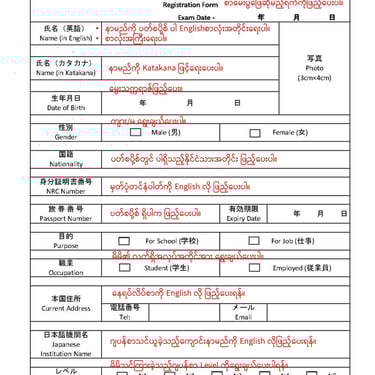 Registration Form စာမေးပွဲဖြေဆိုမည့်ရက်ကိုဖြည့်ပေးပါ။
Exam Date - 年 月 日
氏名（英語） * နာမည်ကို ပတ်စပို့စ် ပါ Englishစာလုံးအတိုင်းရေးပါ။
Name (in English) * စာလုံးအကြီးရေးပါ။
氏名（カタカナ） နာမည်ကို Katakana ဖြင့်ရေးပေးပါ။
Name (in Katakana)
写真
Photo
(3cm×4cm)
မွေးသက္ကရာဇ်ဖြည့်ပေးပါ။
生年月日 年 月 日
Date of Birth
ကျား/မ ရွေးချယ်ပေးပါ။
性別 Male (男) Female (女)
Gender
国籍 ပတ်စပို့စ်တွင် ပါရှိသည့်နိုင်ငံသားအတိုင်း ဖြည့်ပေးပါ။
Nationality
身分証明書番号 မှတ်ပုံတင်နံပါတ်ကို English လို ဖြည့်ပေးပါ။
NRC Number
旅券番号 ပတ်စပို့စ် ရှိပါက ဖြည့်ပေးပါ။ 有効期限 年 月 日
Passport Number Expiry Date
目的 For School (学校) For Job (仕事)
Purpose
မိမိ၏ လက်ရှိအလုပ်အကိုင်အား ရွေးချယ်ပေးပါ။
職業 Student (学生) Employed (従業員)
Occupation
本国住所 နေရပ်လိပ်စာကို English လို ဖြည့်ပေးရန်။
Current Address
電話番号 メール
Tel: Email
日本語機関名 ဂျပန်စာသင်ယူခဲ့သည့်ကျောင်းနာမည်ကို English လိုဖြည့်ပေးရန်။
Japanese
Institution Name
レベル